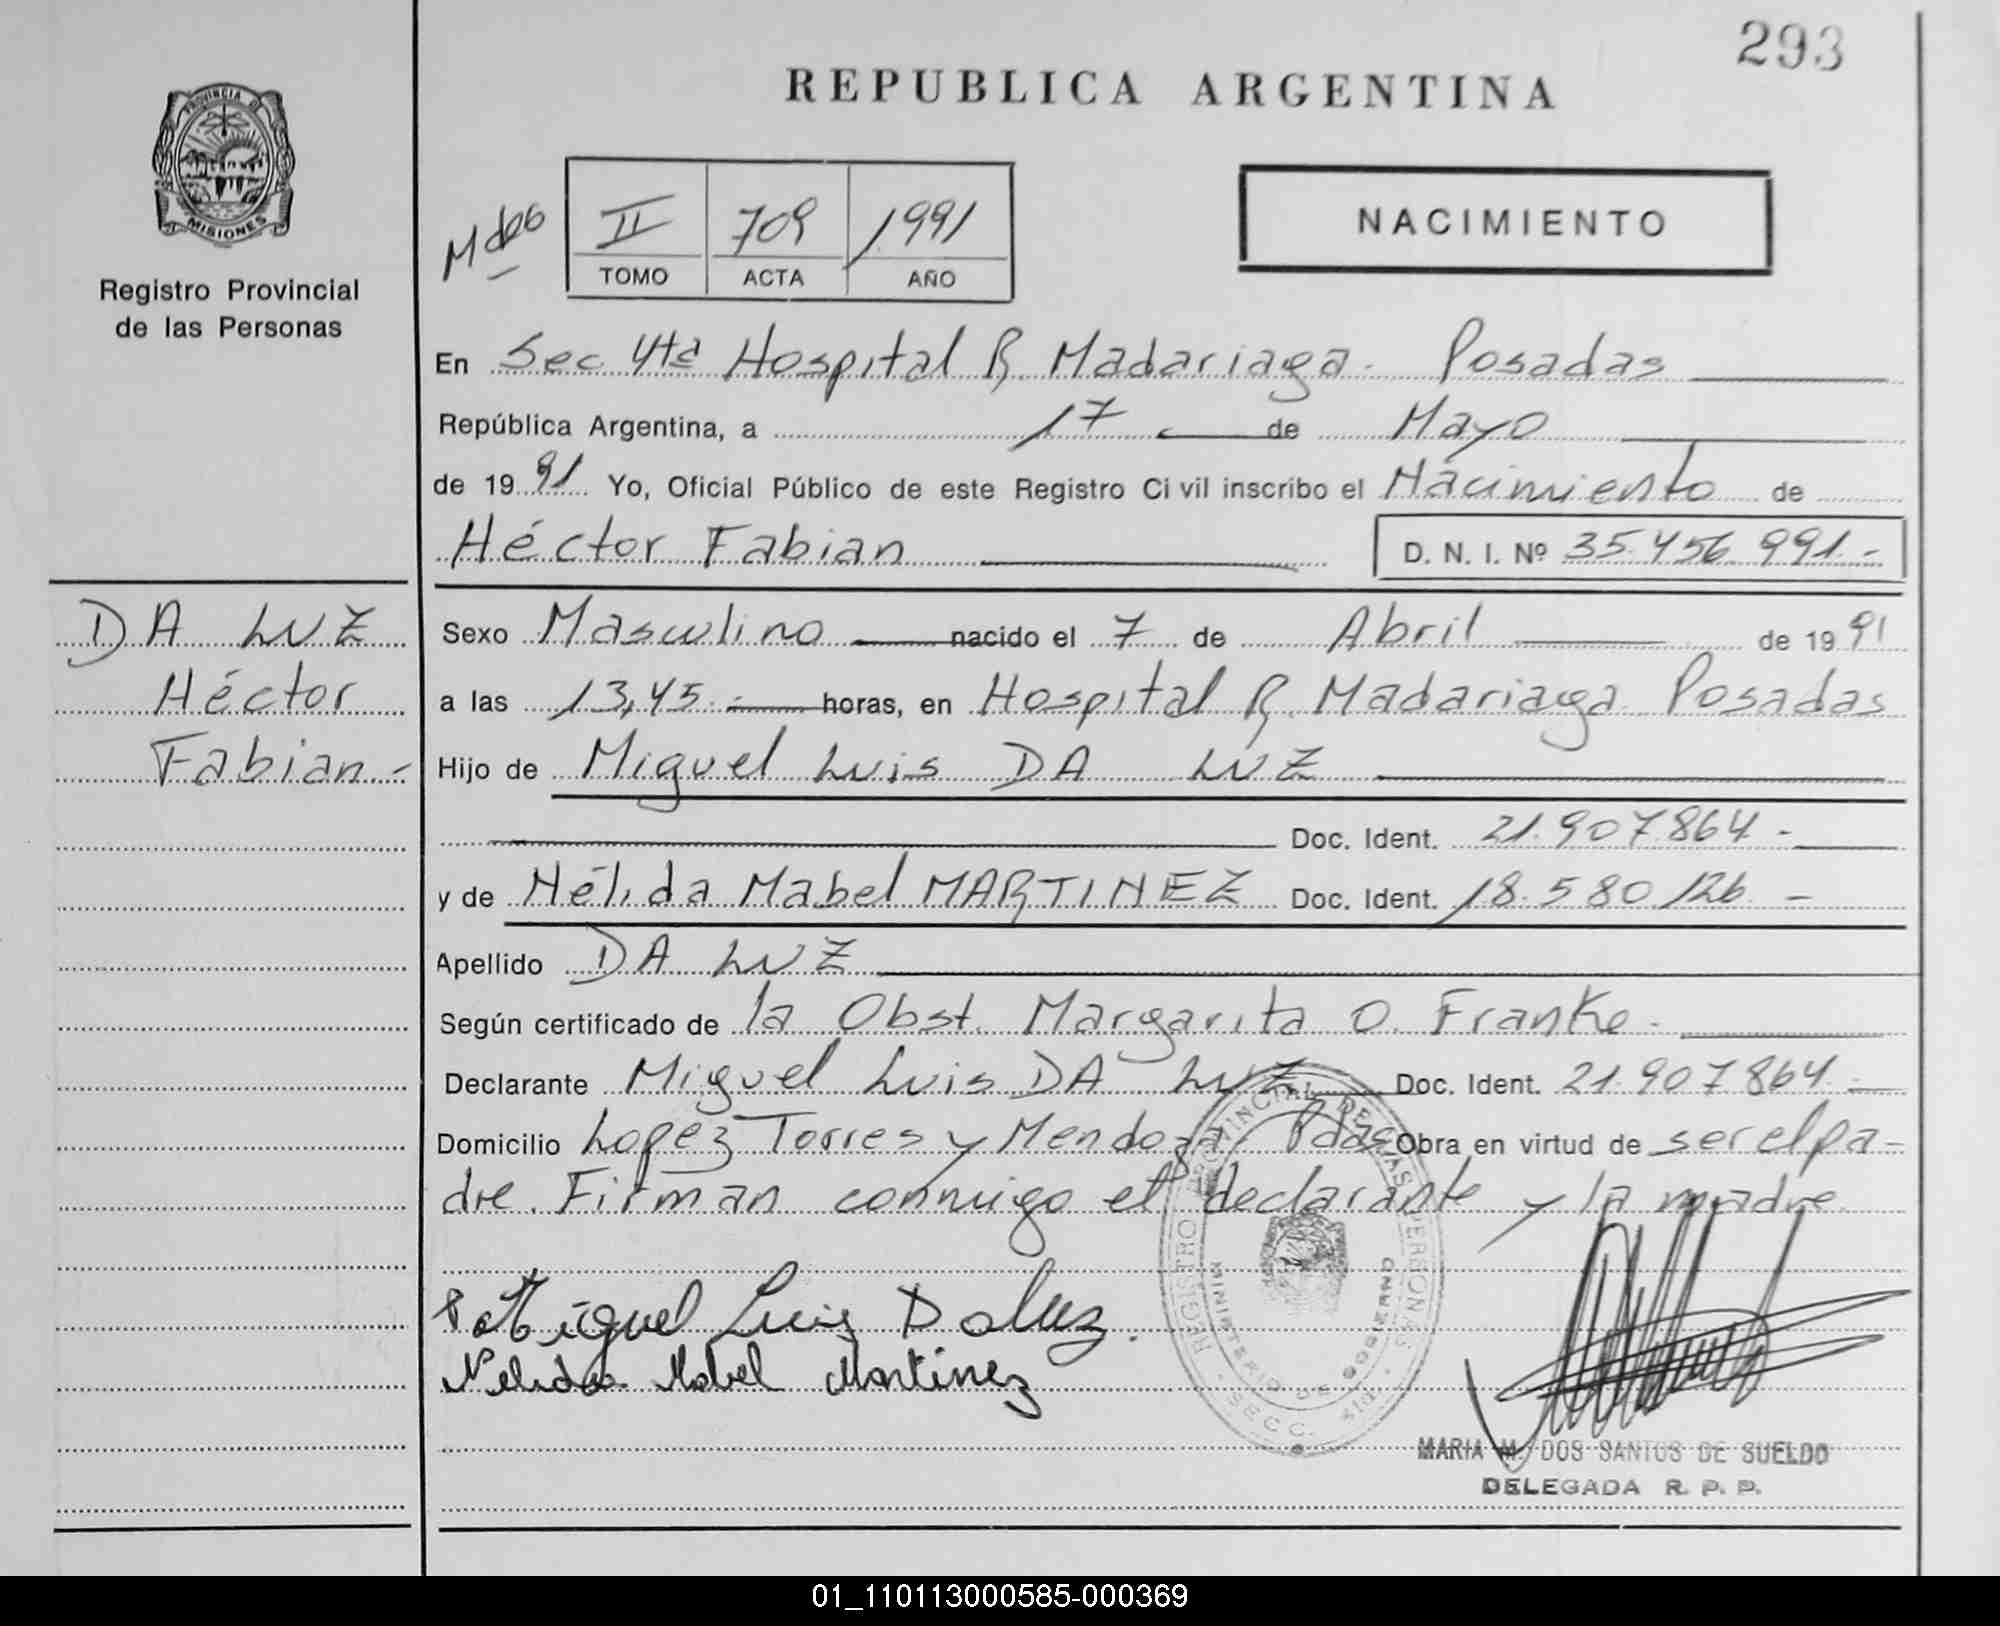 293
REPUBLICA ARGENTINA
PROVINCIA DE
MISIONES
Registro Provincial
de las Personas
II 709 1991
TOMO ACTA AÑO
NACIMIENTO
En Sec 4ta Hospital R. Madariaga - Posadas
República Argentina, a 17 de Mayo
de 1991 Yo, Oficial Público de este Registro Civil inscribo el Nacimiento de
Héctor Fabian D. N. I. Nº 35.456.991.-
DA LUZ
Héctor
Fabian -
Sexo Masculino nacido el 7 de Abril de 1991
a las 13,45.- horas, en Hospital R. Madariaga Posadas
Hijo de Miguel Luis DA LUZ
Doc. Ident. 21.907.864.-
y de Nélida Mabel MARTINEZ Doc. Ident. 18.580.126.-
Apellido DA LUZ
Según certificado de la Obst. Margarita O. Franke.
Declarante Miguel Luis DA LUZ Doc. Ident. 21.907.864.-
Domicilio Lopez Torres y Mendoza Pdas Obra en virtud de ser el pa-
dre. Firman conmigo el declarante y la madre.
Miguel Luis Daluz.
Nelida Mabel Martinez
REGISTRO PROVINCIAL DE LAS PERSONAS
MINISTERIO DE GOBIERNO
SECC.
MARIA M. DOS SANTOS DE SUELDO
DELEGADA R. P. P.
01_110113000585-000369